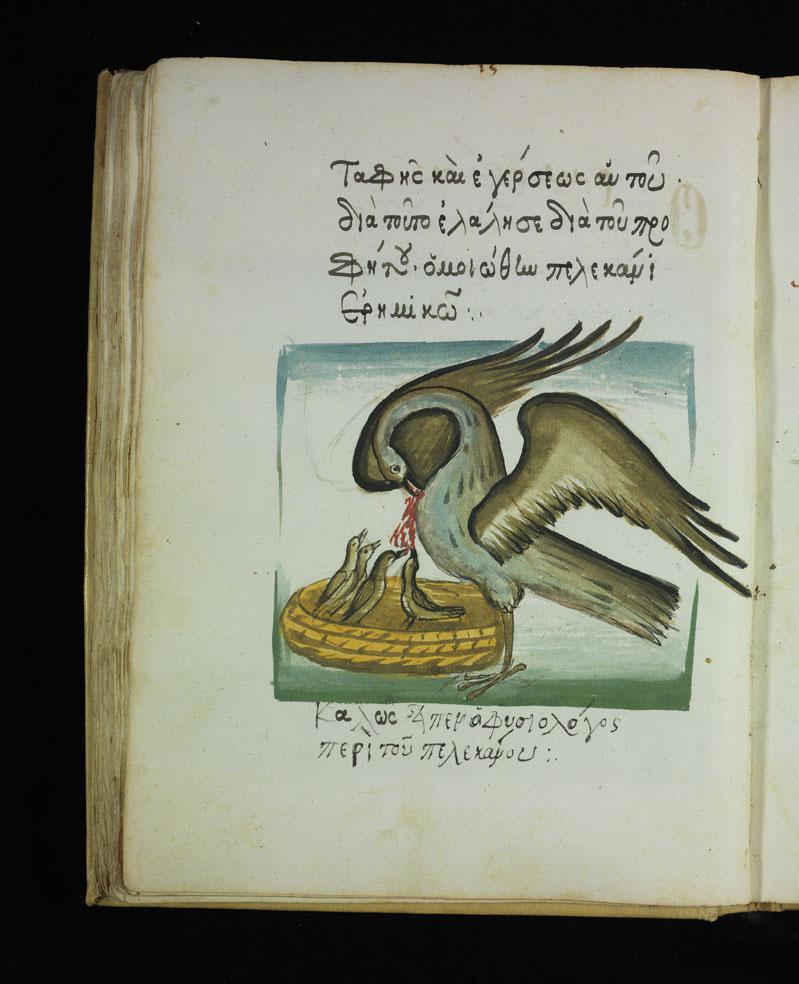 Ταφῆς καὶ ἐγέρσεως αὐτοῦ·
διὰ τοῦτο ἐλάλησε διὰ τοῦ προ
φήτου· ὁμοιώθην πελεκάνι
Ἐρημικῶ:.
Καλῶς εἶπεν ὁ φυσιολόγος
περὶ τοῦ πελεκάνου:.